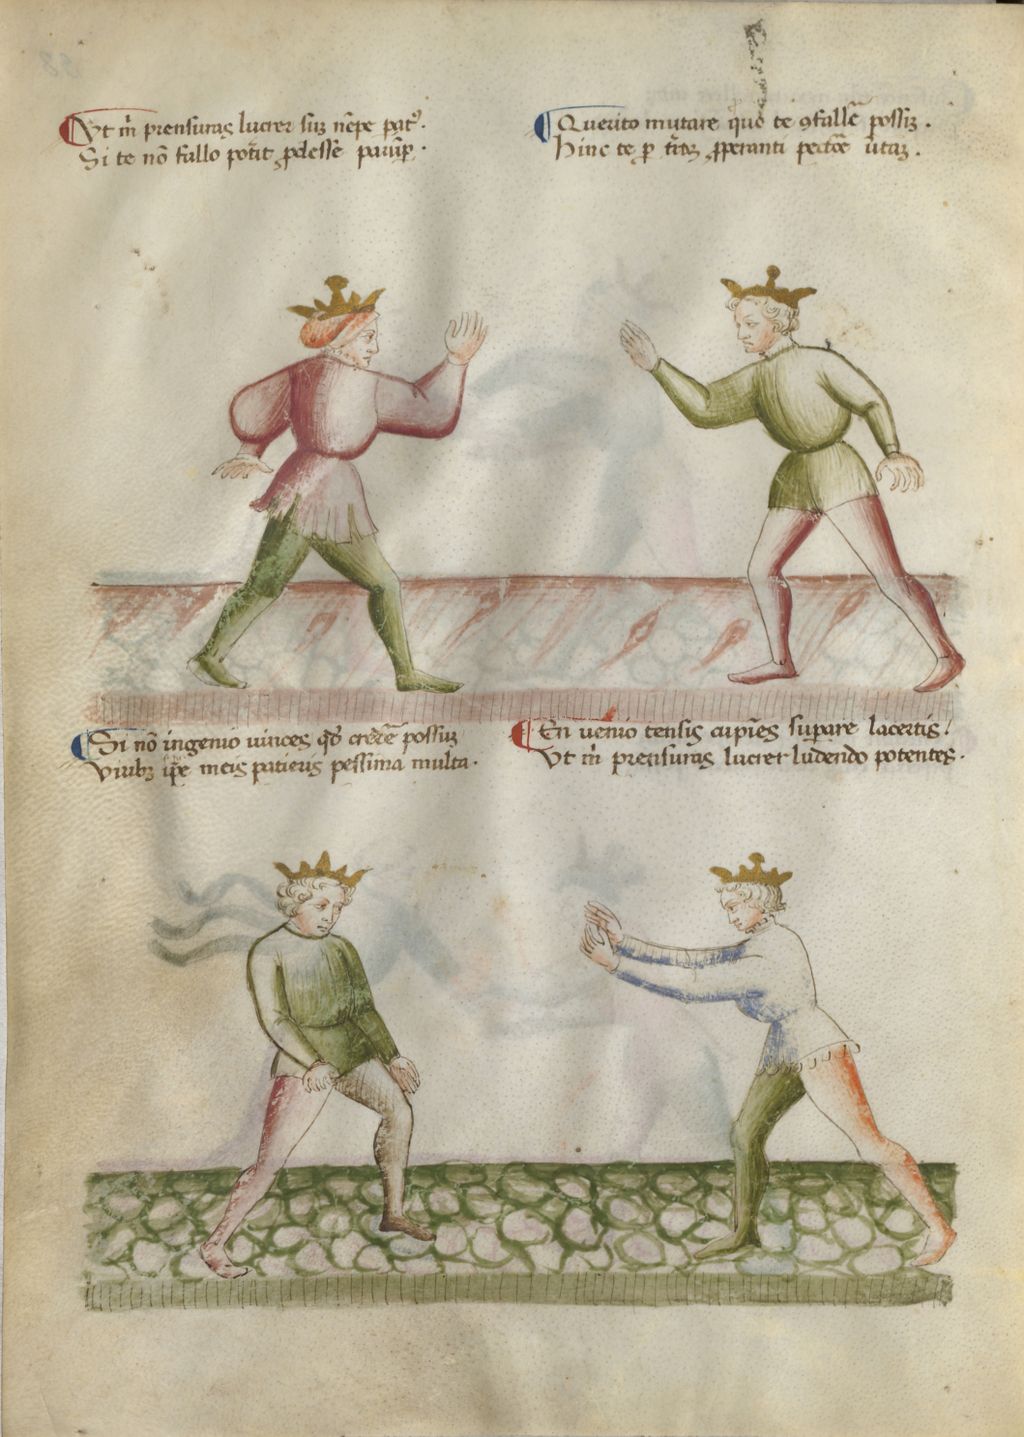 Ut m̄ prensuras lucrer sū nēpe parat9.
Si te nō fallo poterit ꝓdesse parūper.
Querito mutare quō te ꝯfallē possiꝫ.
Hinc te ꝑ trītaꝫ ꝓperanti pectore vertaꝫ.
Si nō ingenio vinces qd̄ credere possuꝫ
Viribꝫ ip̄e meis patieris pessima multa.
En venio tensis cupiēs suꝑare lacertis /
Ut m̄ prensuras lucrer ludendo potentes.